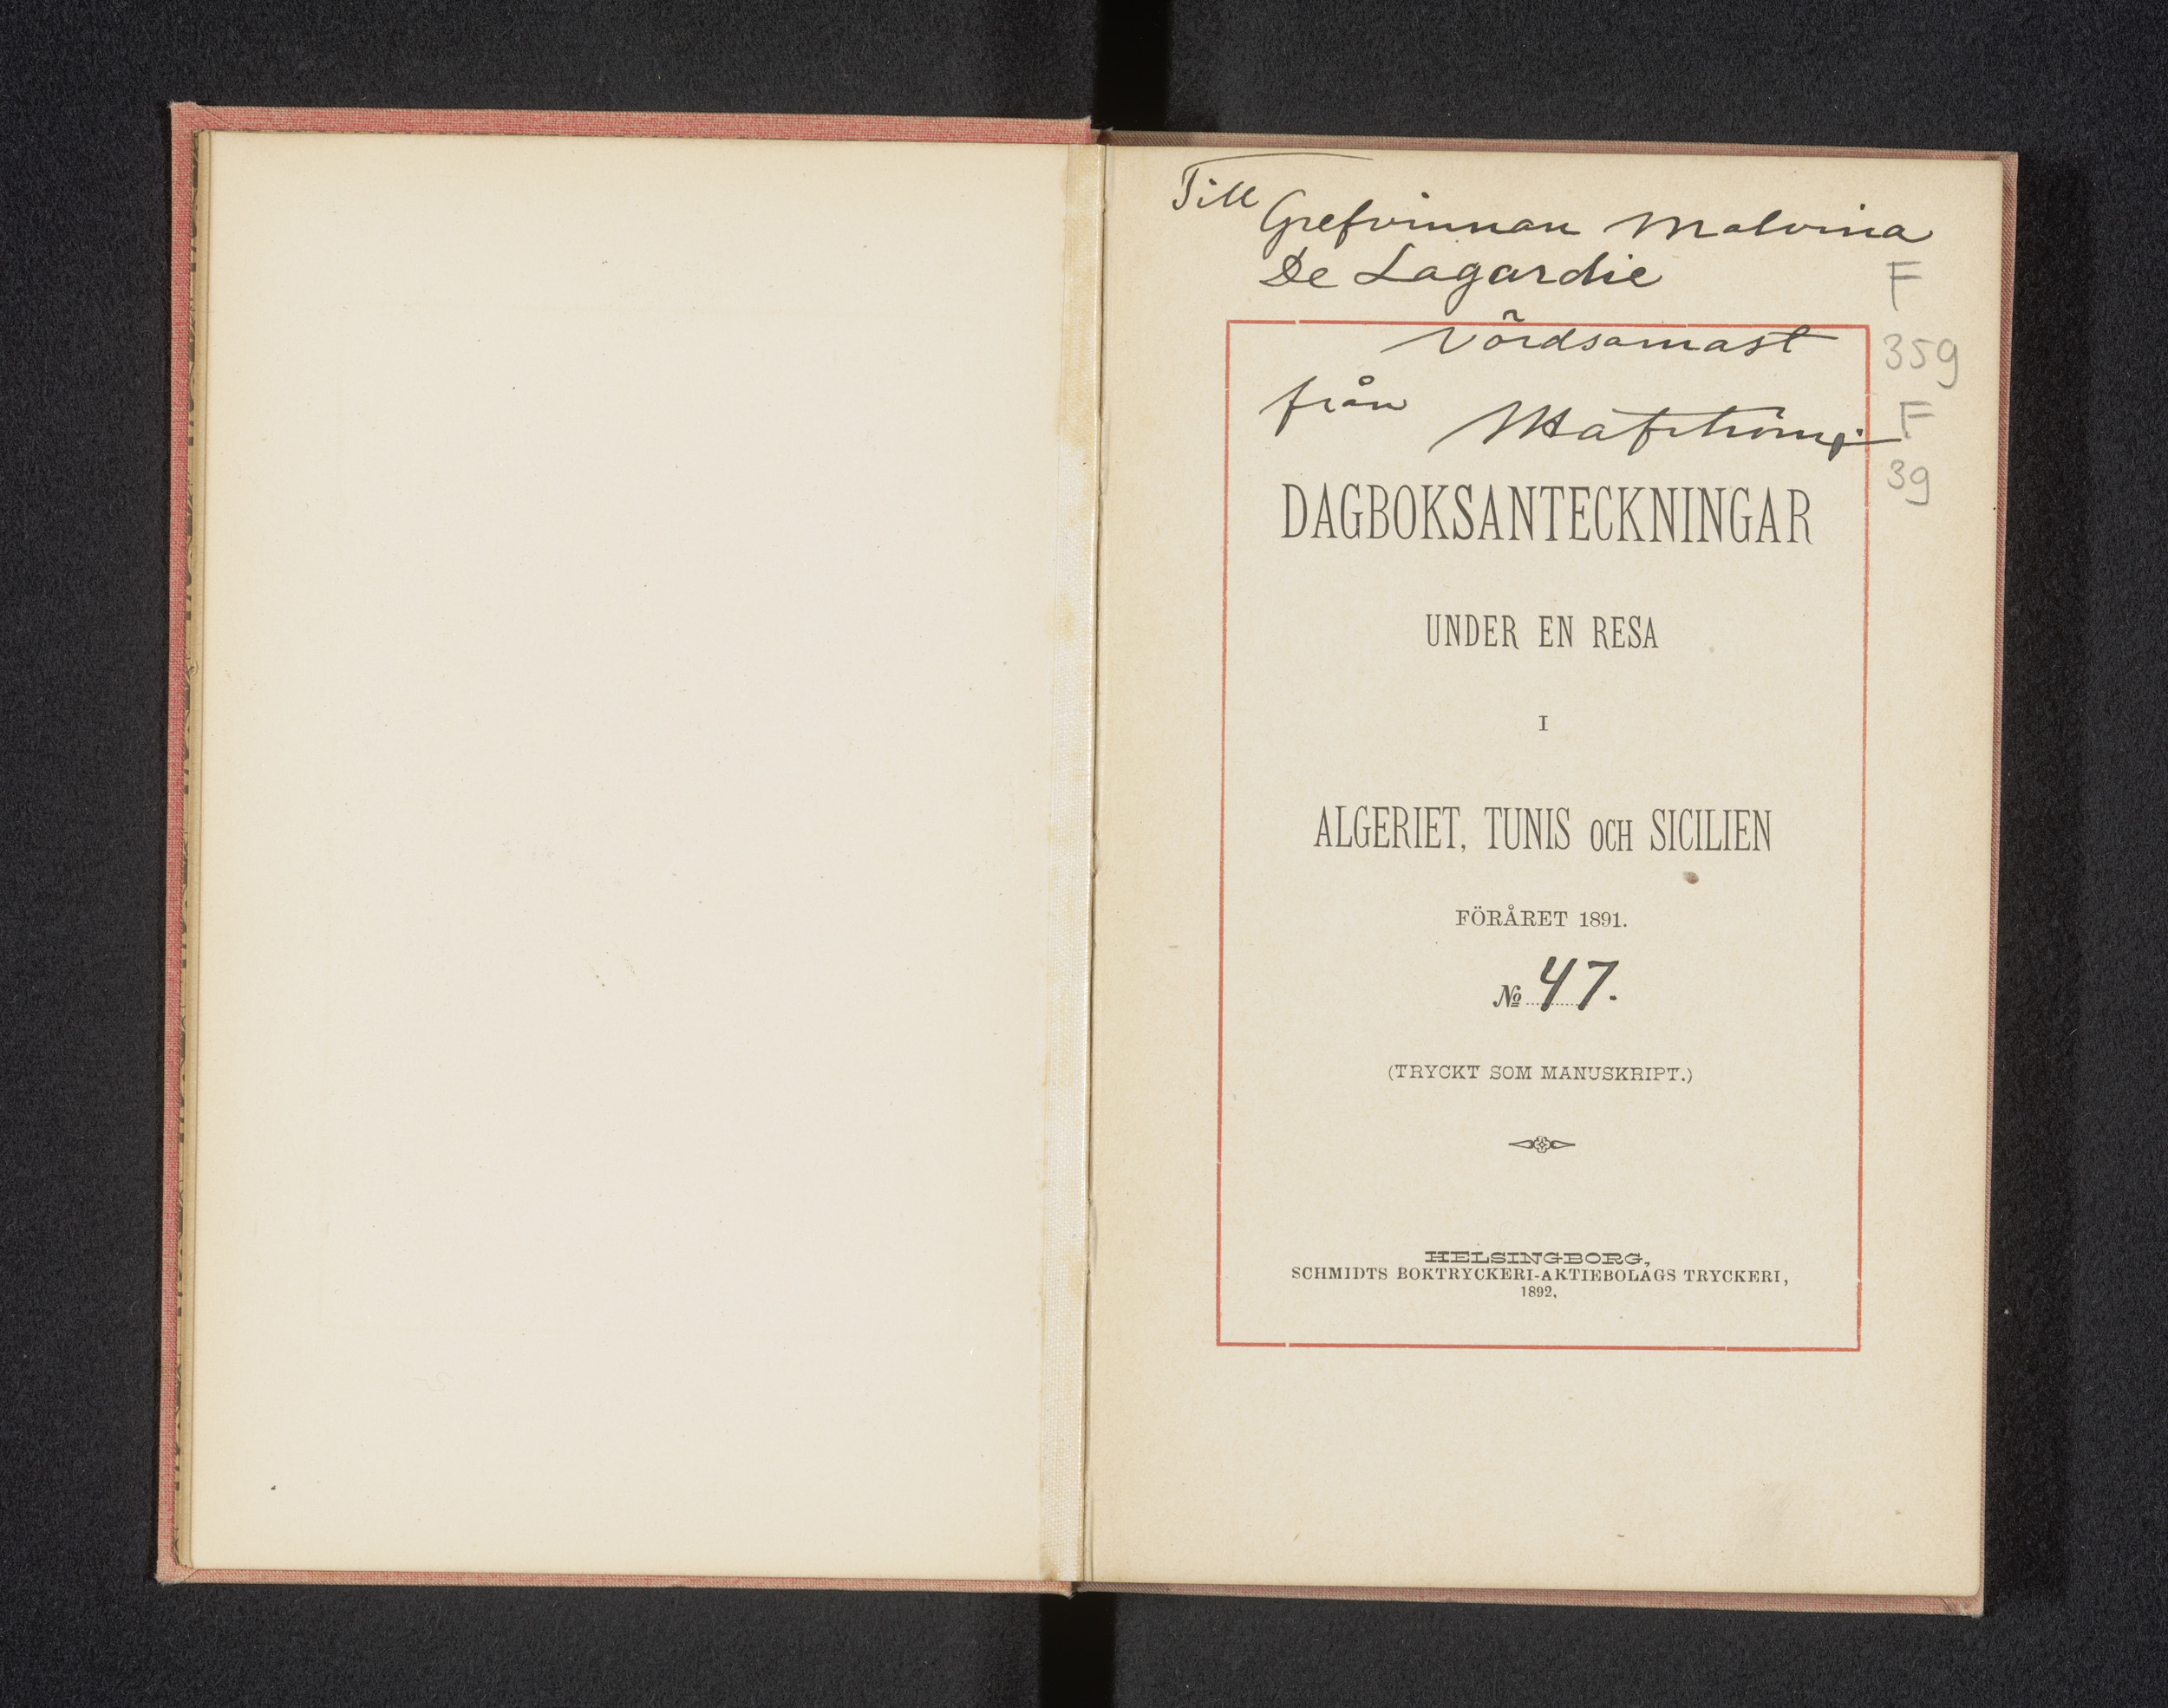 Till
Grefvinnan Malvina
De Lagardie
F
359
Vördsamast
från
F
39
DAGBOKSANTECKNINGAR
UNDER EN RESA
I
ALGERIET, TUNIS OCH SICILIEN
FÖRÅRET 1891.
№ 47.
(TRYCKT SOM MANUSKRIPT.)
HELSINGBORG,
SCHMIDTS BOKTRYCKERI-AKTIEBOLAGS TRYCKERI,
1892,